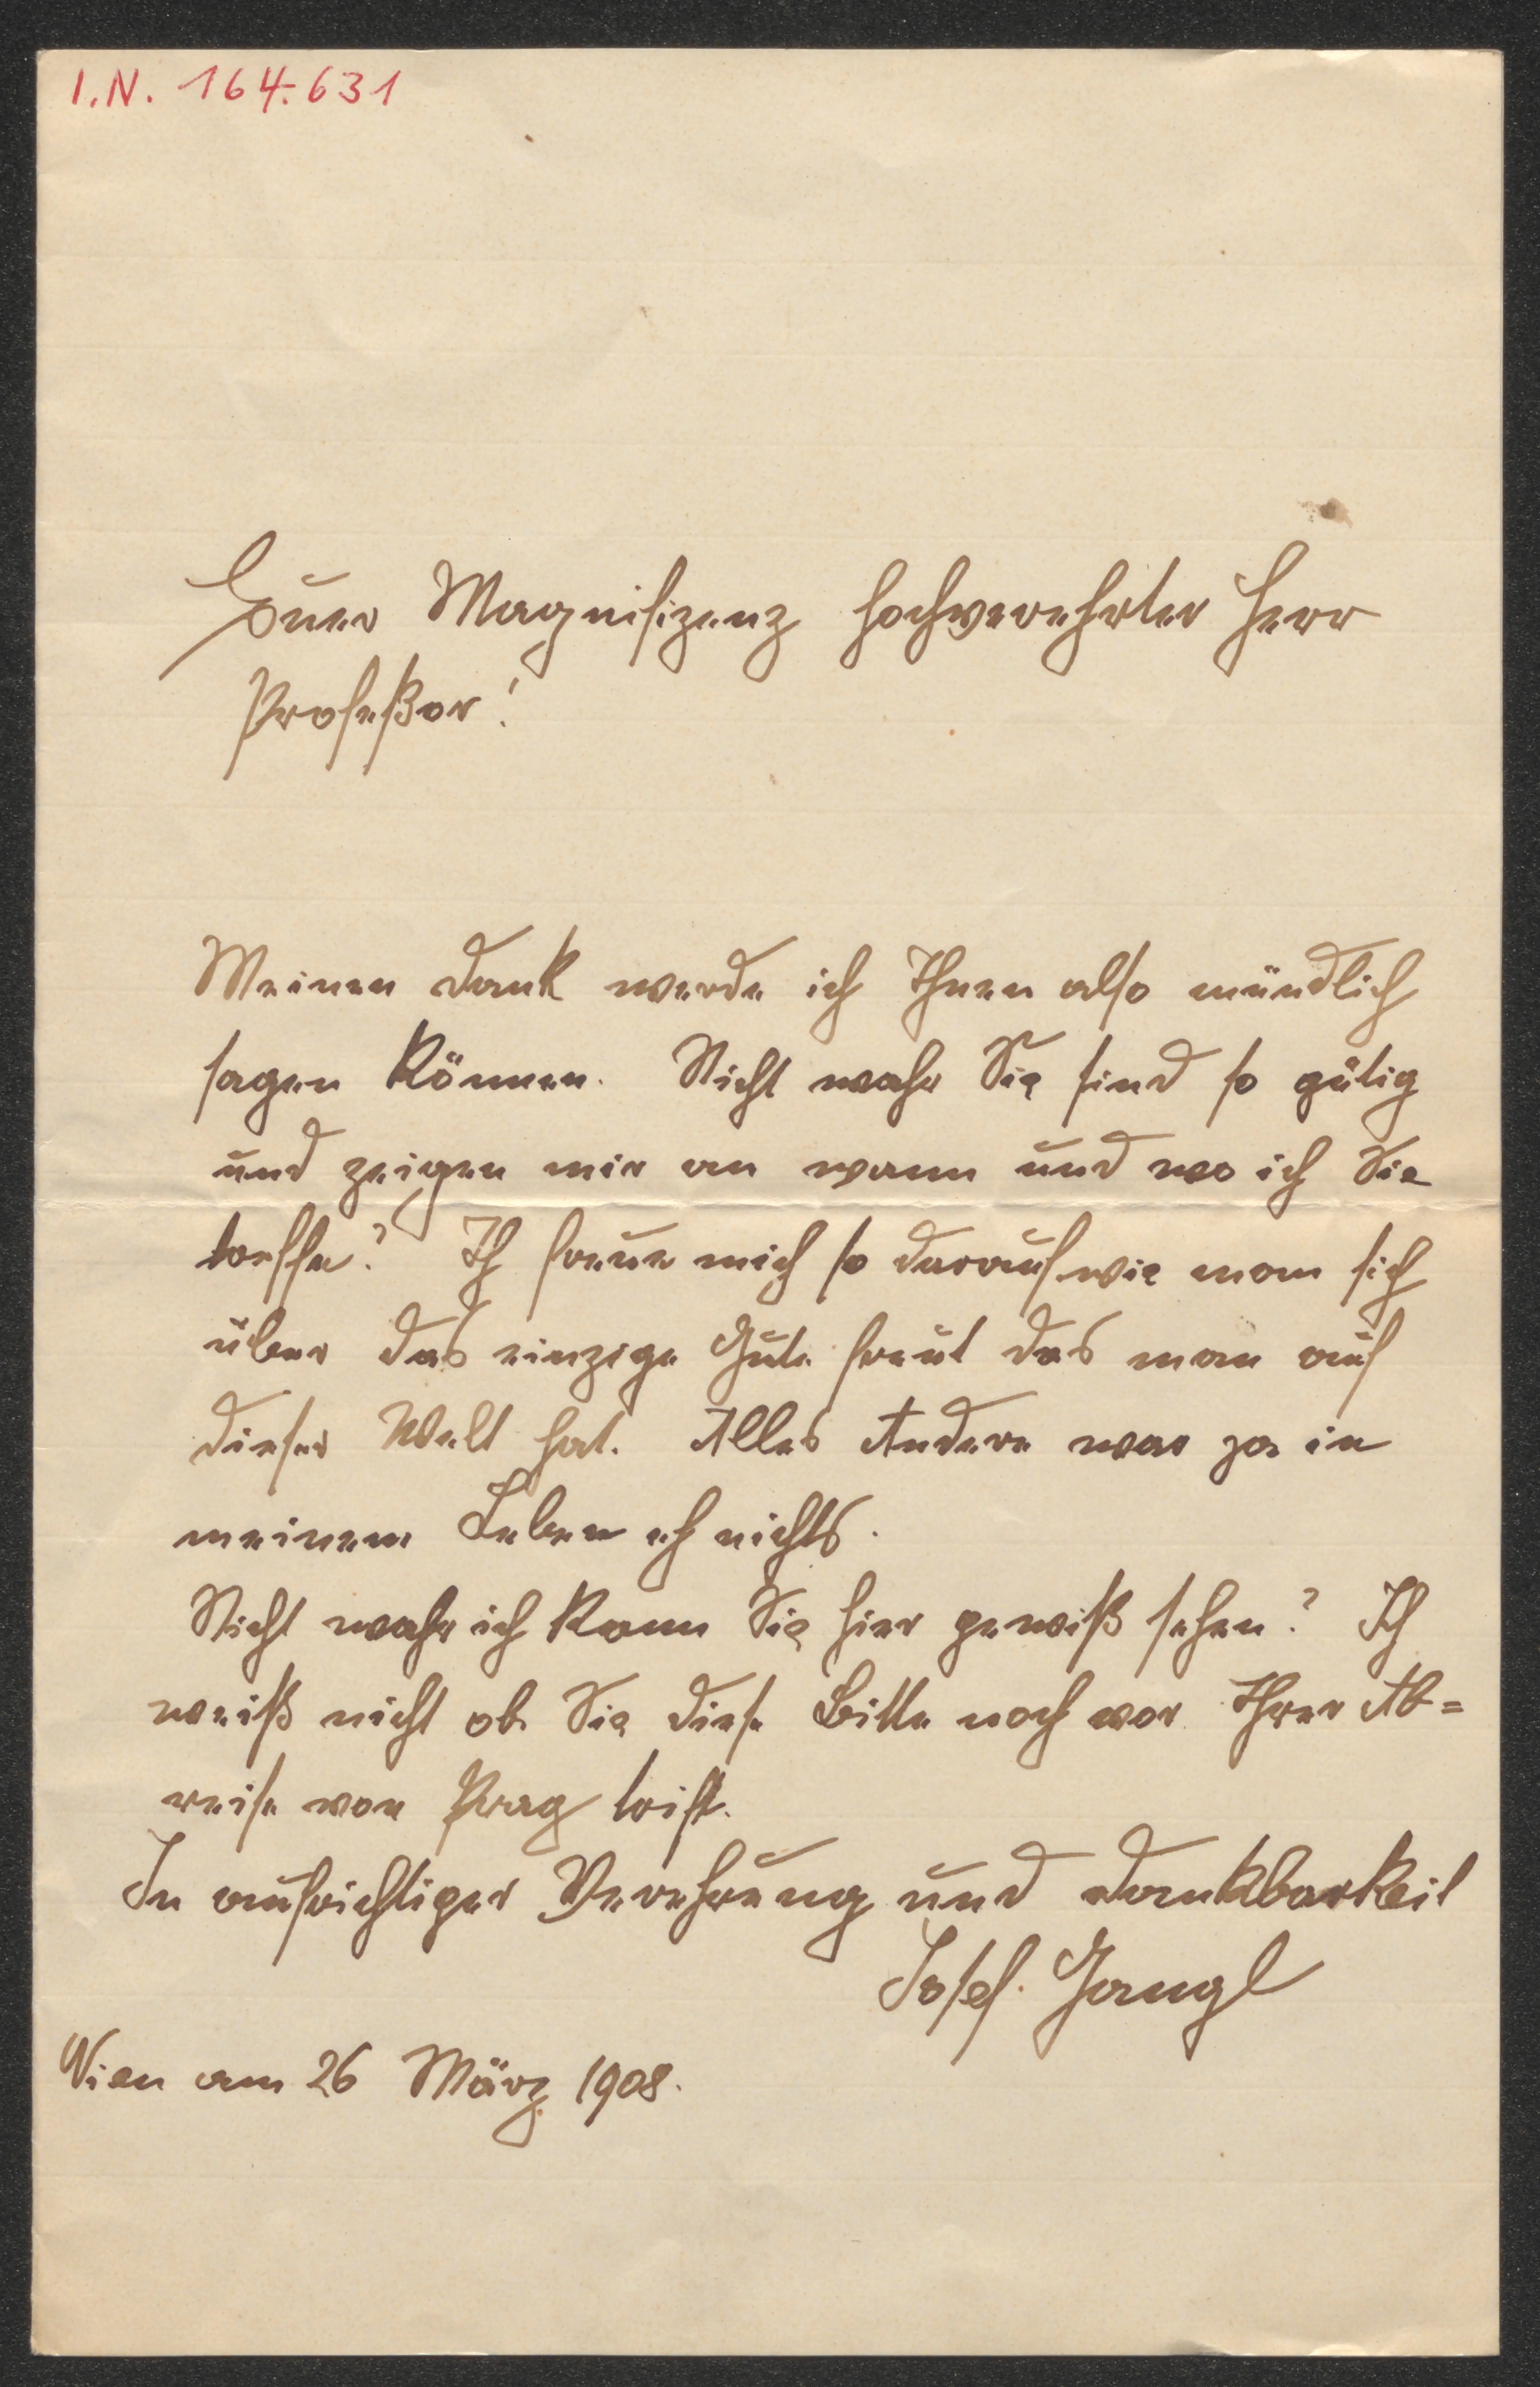 I.N. 164.631
Euer Magnifizenz hochverehrter Herr
Profeßor!
Meinen Dank werde ich Ihnen also mündlich
sagen können. Nicht wahr Sie sind so gütig
und zeigen mir an wann und wo ich Sie
treffe? Ich freue mich so darauf wie man sich
über das einzige Gute freut das man auf
dieser Welt hat. Alles Andere war ja in
meinem Leben eh nichts.
Nicht wahr ich kann Sie hier gewiß sehen? Ich
weiß nicht ob Sie diese Bitte noch vor Ihrer Ab=
reise von Prag trift.
In aufrichtiger Verehrung und Dankbarkeit
Josef Gangl
Wien am 26 März 1908.